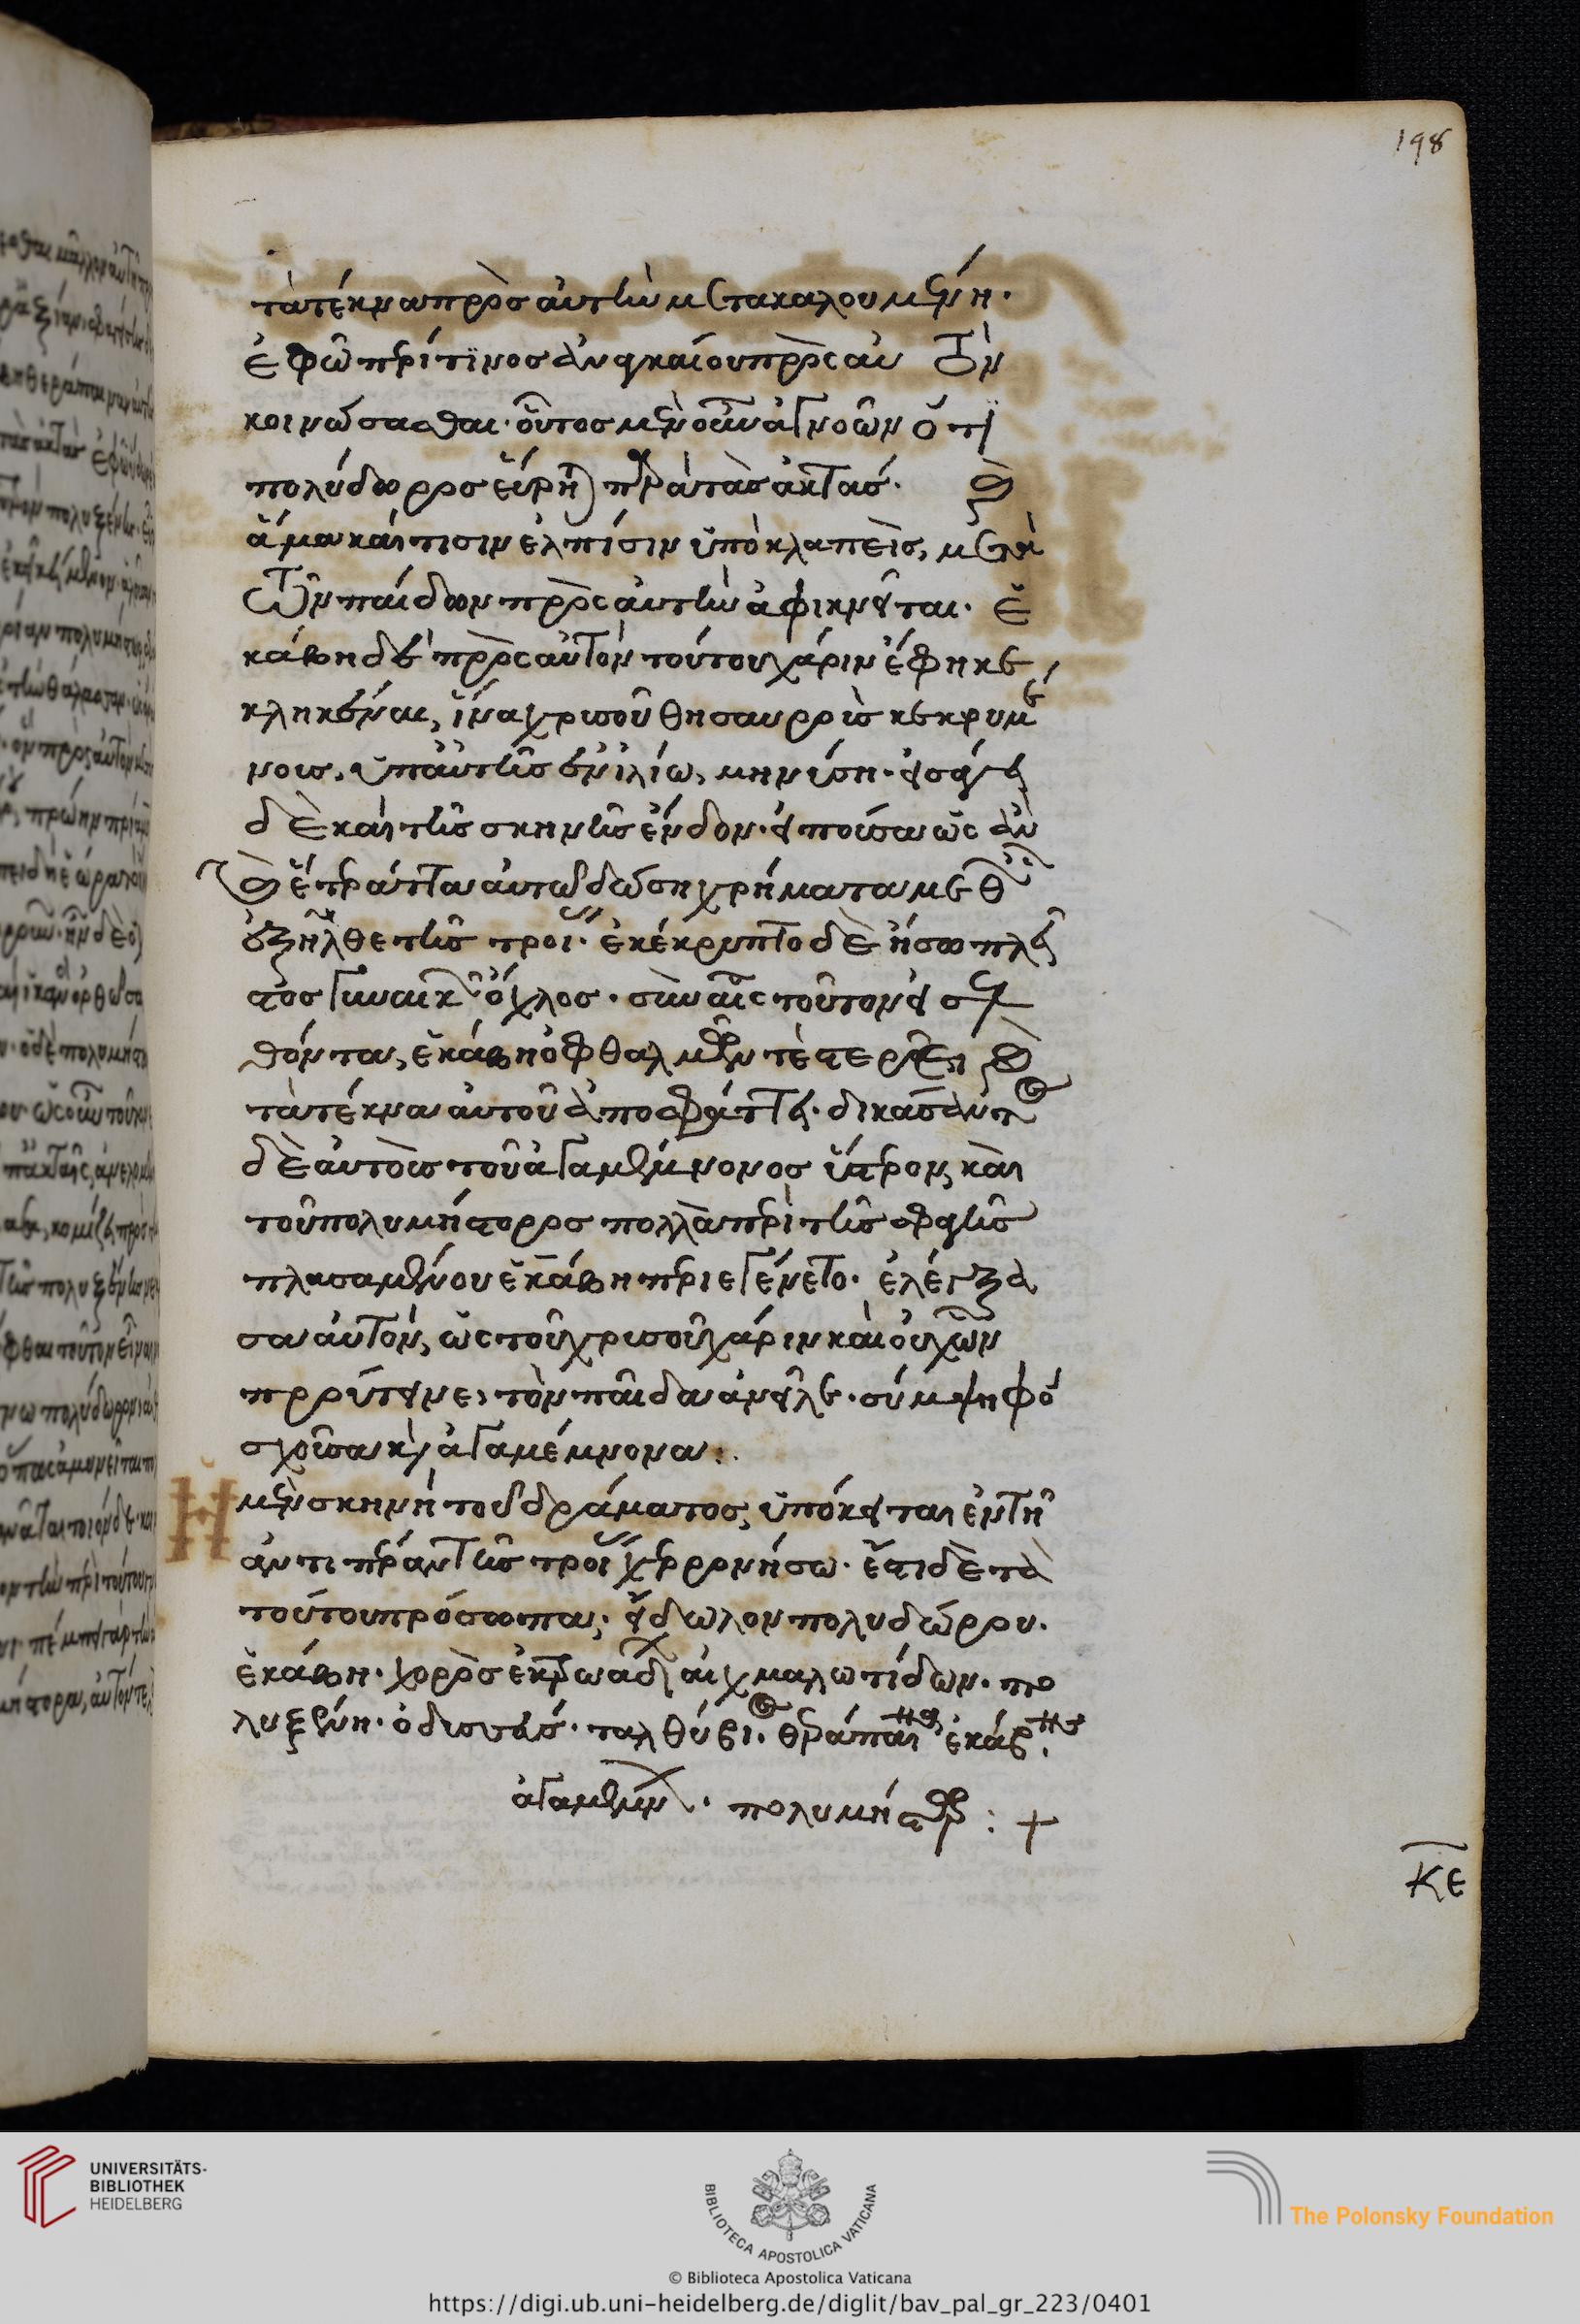 198
τὰ τέκνα πρὸς αὐτὴν μετακαλουμένη.
ἐφ ᾧ περί τινος ἀναγκαίου πρὸς αὐτὸν
κοινώσασθαι. οὗτος μὲν οὖν ἀγνοῶν ὅτι
πολύδωρος εὕρηται παρὰ τὰς ἀκτάς.
ἅμα καί τισιν ἐλπίσιν ὑποκλαπεὶς, μετὰ
τῶν παίδων πρὸς αὐτὴν ἀφικνεῖται. ἑ
κάβη δὲ πρὸς αὐτὸν τούτου χάριν ἔφη κε
κληκέναι, ἵνα χρυσοῦ θησαυροὺς κεκρυμμέ
νους, ὑπ αὐτῆς ἐν ἰλίῳ, μηνύσῃ. εἰσάγει
δὲ καὶ τῆς σκηνῆς ἔνδον. εἰποῦσα ὡς ἂν
καὶ ἕτερα ἄττα αὐτῷ δώσῃ χρήματα μεθ ὧν
ἐξῆλθε τῆς τροίας. ἐκέκρυπτο δὲ ἔσω πλεῖ
στος γυναικῶν ὄχλος. σὺν αἷς τοῦτον εἰσελ
θόντα, ἑκάβη ὀφθαλμῶν τε στερεῖ καὶ
τὰ τέκνα αὐτοῦ ἀποσφάττει. δικάσαντος
δὲ αὐτοῖς τοῦ ἀγαμέμνονος ὕστερον, καὶ
τοῦ πολυμήστορος πολλὰ περὶ τῆς σφαγῆς
πλασαμένου ἑκάβη περιεγένετο. ἐλέγξα
σα αὐτὸν, ὡς τοῦ χρυσοῦ χάριν καὶ οὐχ ὧν
προὔτεινε, τὸν παῖδα ἀνεῖλε. σύμψηφον
σχοῦσα καὶ ἀγαμέμνονα:.
Ἡ μὲν σκηνὴ τοῦ δράματος, ὑπόκειται ἐν τῇ
ἀντιπέραν τῆς τροίας χερρονήσῳ. ἔστι δὲ τὰ
τούτου πρόσωπα, εἴδωλον πολυδώρου.
ἑκάβη. χορὸς ἐκ τρωάδων αἰχμαλωτίδων. πο
λυξένη. ὀδυσσεύς. ταλθύβιος. θεράπαινα ἑκάβης.
ἀγαμέμνων. πολυμήστωρ: +
κε
UNIVERSITÄTS-
BIBLIOTHEK
HEIDELBERG
BIBLIOTECA APOSTOLICA VATICANA
The Polonsky Foundation
© Biblioteca Apostolica Vaticana
https://digi.ub.uni-heidelberg.de/diglit/bav_pal_gr_223/0401